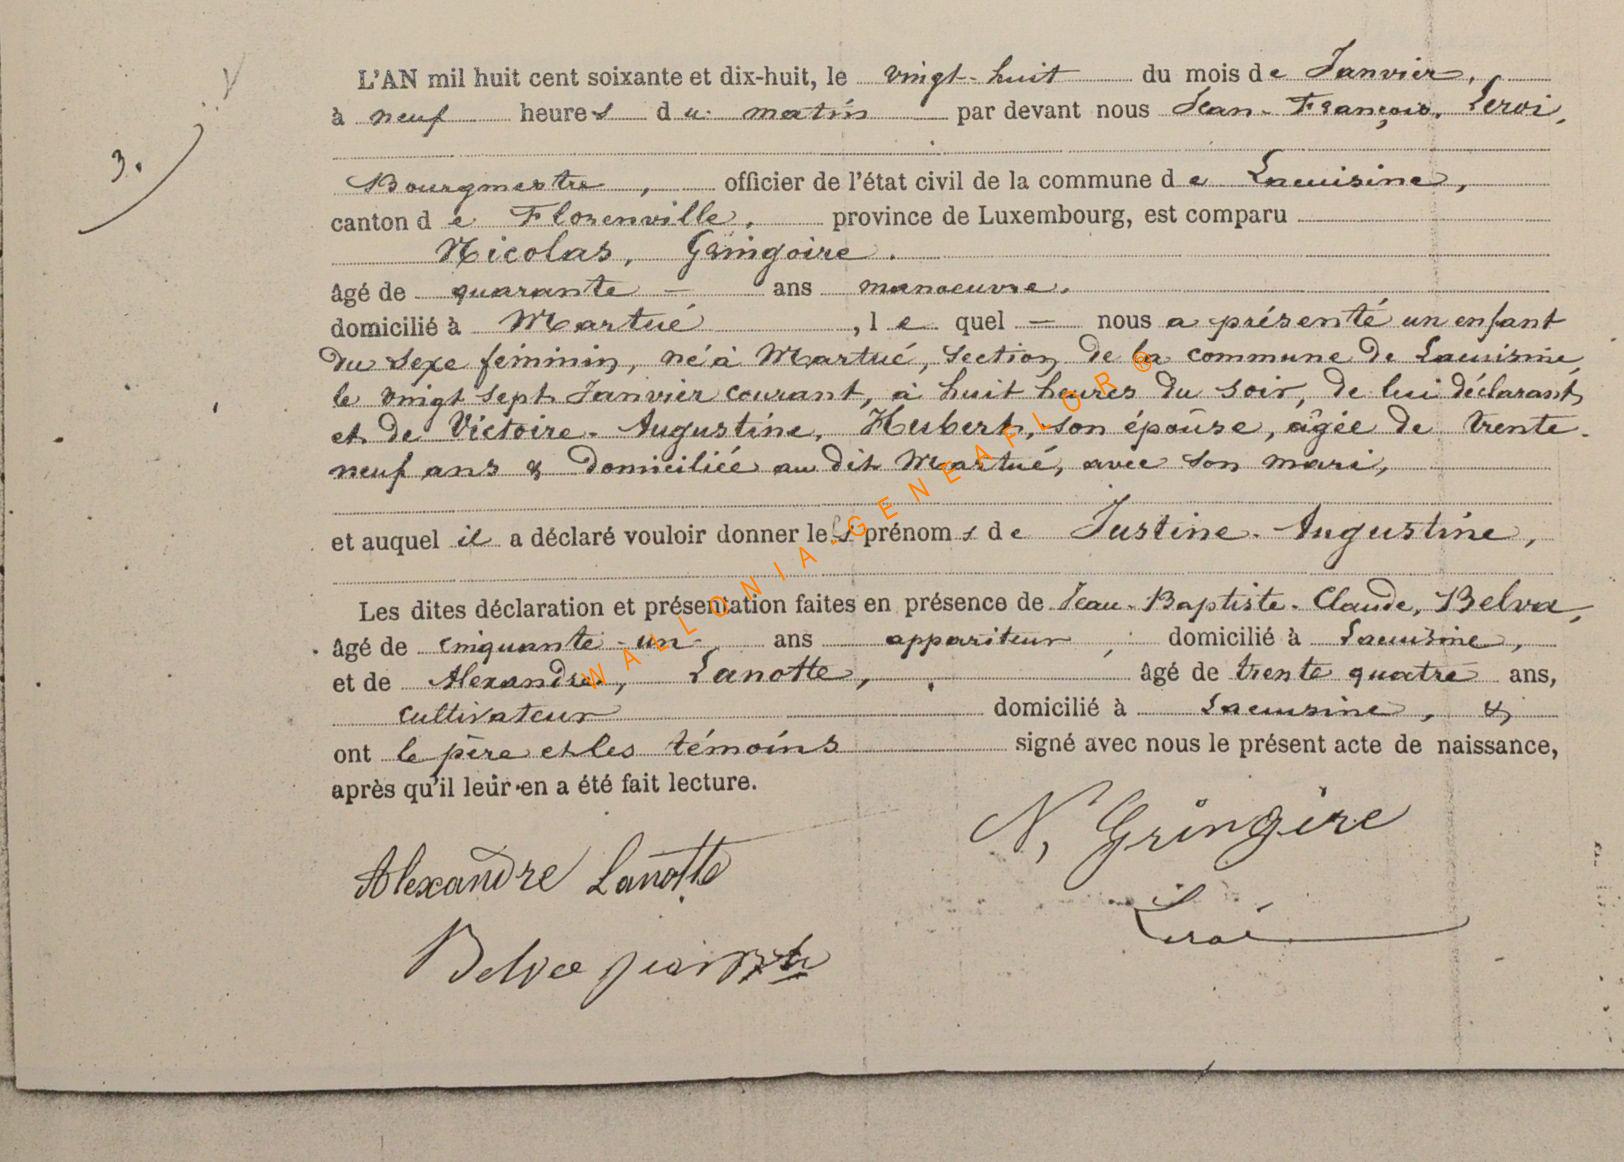 L'AN mil huit cent soixante et dix-huit, le vingt-huit du mois de Janvier,
à neuf heures du matin par devant nous Jean-François, Leroi,
3.
Bourgmestre, officier de l'état civil de la commune de Lacuisine,
canton de Florenville, province de Luxembourg, est comparu
Nicolas, Gringoire.
âgé de quarante – ans manoeuvre.
domicilié à Martué, lequel — nous a présenté un enfant
du sexe féminin, né à Martué, section de la commune de Lacuisine,
le vingt sept Janvier courant, à huit heures du soir, de lui déclarant,
et de Victoire-Augustine, Hubert, son épouse, âgée de trente-
neuf ans & domiciliée au dit Martué, avec son mari,
et auquel il a déclaré vouloir donner les prénoms de Justine-Augustine,
Les dites déclaration et présentation faites en présence de Jean-Baptiste-Claude, Belva,
âgé de cinquante-un- ans appariteur, domicilié à Lacuisine,
et de Alexandre, Lanotte, âgé de trente quatre ans,
cultivateur domicilié à Lacuisine, &
ont le père et les témoins signé avec nous le présent acte de naissance,
après qu'il leur en a été fait lecture.
N, Gringire
Alexandre Lanotte
Leroi
Belva
WALLONIA-GENEAFLOR®